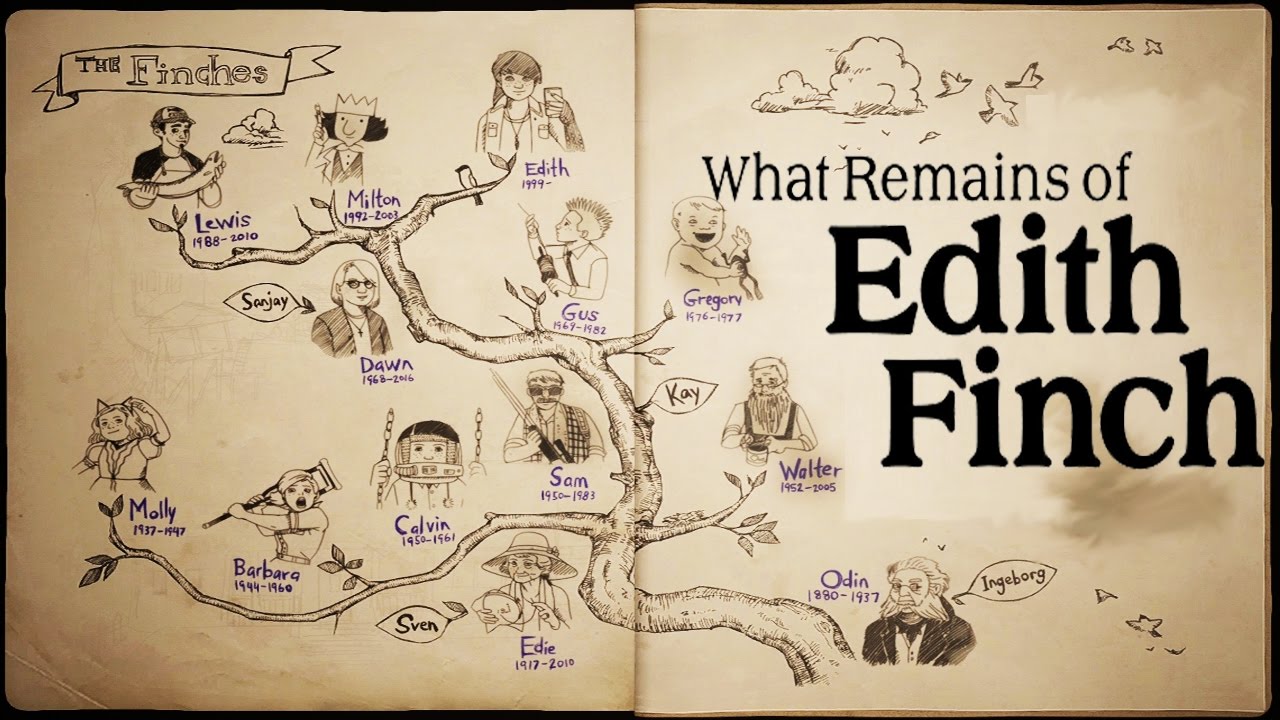 THE Finches
What Remains of
Edith
Finch
Edith
1999-
Milton
1992-2003
Lewis
1988-2010
Gus
1969-1982
Gregory
1976-1977
Sanjay
Dawn
1968-2016
Kay
Sam
1950-1983
Walter
1952-2005
Calvin
1950-1961
Molly
1937-1947
Barbara
1944-1960
Sven
Edie
1917-2010
Odin
1880-1937
Ingeborg